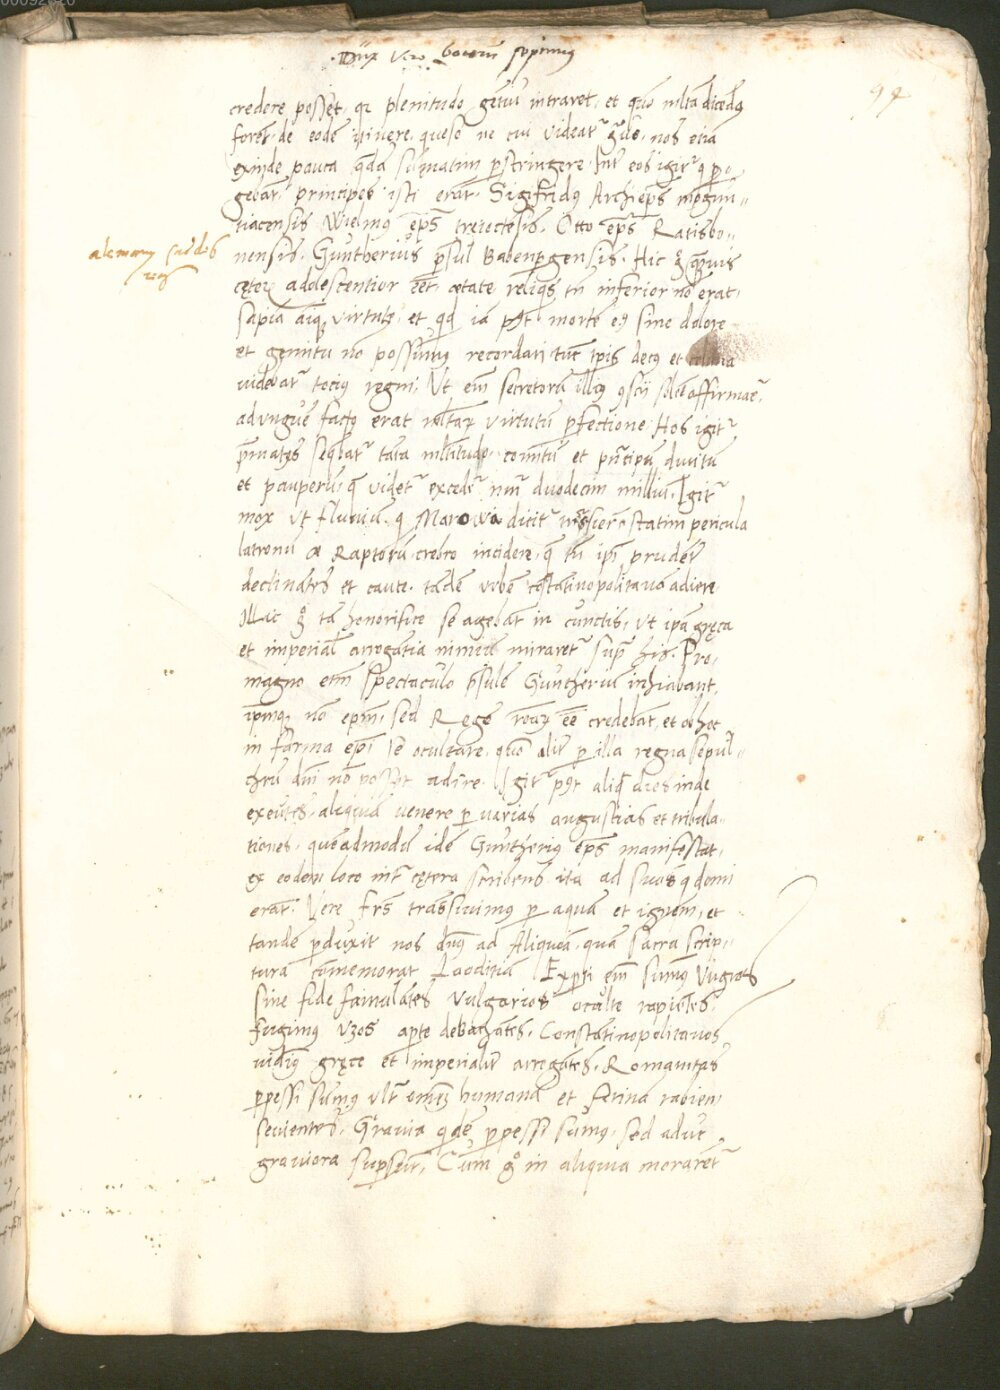 credere posset, qz plenitudo gētiū intraret, et quō mlta dicēdꝰ
foret de eodē itinere, queso ne cui videatʳ gue, nos etiā
exinde pauca qdā sūmatim pstringere. Int̄ eos igitʳ q pe
gebāt principes isti erāt. Sigifridꝰ Archieps̄ mogun
tiacensis Wielmꝰ ep̄s treiectēsis. Otto ep̄s Ratisbo
nensis. Guntherius p̄sul Babenpgensis. Hic gͦ quāvis
cęteris adolescentior eēt ætate reliqꝰs tn̄ inferior nō erat
sapīa atqz virtute, et qd iā post mortē eꝰ sine dolore
et gemitu nō possumꝰ recordari tūc tp̄is decꝰ et
uidebatʳ tociꝰ regni. Ut em̄ secretorū illiꝰ ꝯscii solēt affirmare,
ad unguē factꝰ erat mltarꝫ virtutū pfectione. Hos igitʳ
p̄mates seqbatʳ tāta mltitudo comitū et pn̄cipū divitū
et pauperū, q videtʳ excedeʳ nm̄ duodecim milliū. Igitʳ
mox ut fluviū q Marowa dicitʳ trāsierēt statim pericula
latronū & Raptorū crebro incidere, q tn̄ ip̄i prudēt̄
declinātes et caute tādē urbē cōstātinopolitanā adiere
Illic gͦ tā honorifice se agebāt in cunctis, ut ipā gręca
et imperial arrogātia nimiū miraretʳ supʳ his. Pro
magno etm̄ spectaculo p̄sulē Guntheriū inhiabant,
ipmqz nō epm̄, sed Regē roaꝫ eē credebāt, et ob hoc
in forma ep̄i sē ocultare, quō alit̄ p illa regna sepul
chrū dn̄i nō posset adire. Igitʳ post aliqd dies inde
exeūtes, aliquid venere p varias angustias et tribula
tiones, queadmodū idē Guntheriꝰ ep̄s manifestat,
ex eodem loco int̄ cętera scribens ita ad suos q domi
erāt. Vere frēs trāsivimꝰ p aquā et ignem, et
tandē pduxit nos dn̄s ad Aliquā, quā sacra scrip
tura cōmemorat Laoditiā. Expti em̄ sumꝰ Ungros
sine fide famulātes Vulgarios oculte rapiētes.
fugimꝰ uzos apte debachātes. Constātinopolitanos
vidimꝰ gręce et imperialit̄ arrogātes. Romanitas
ppessi sumꝰ ultʳ omnē humanā et ferinā rabiem
sevientes. Gravia qidē ppessi sumꝰ, sed adūc
graviora supsunt. Cum gͦ in aliquia moraretʳ